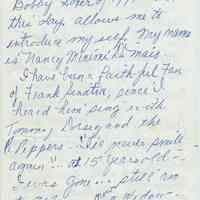 Bobby
this day, allows me to
introduce my self. My name
is Nancy
I have been a faithful Fan
of Frank Sinatra, since I
heard him sing with
Tommy Dorsey and the
Pippers - I'll never smile
again" - at 15 years old -
I was gone... still am